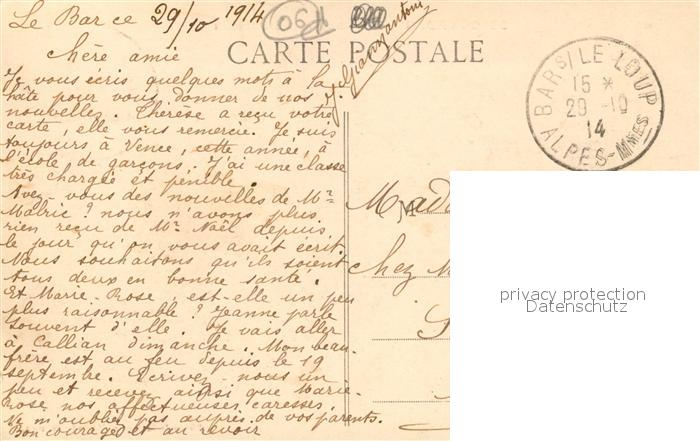 Le Bar ce 29/10 1914
06
CARTE POSTALE
Chère amie
Je vous écris quelques mots à la
hâte pour vous donner de nos
nouvelles. Thérèse a reçu votre
carte, elle vous remercie. Je suis
toujours à Vence, cette année, à
l'école de garçons. J'ai une classe
très chargée et pénible.
Avez-vous des nouvelles de Mr
Malric? nous n'avons plus
rien reçu de Mr Noël depuis
le jour qu'on vous avait écrit
Nous souhaitons qu'ils soient
tous deux en bonne santé.
Et Marie-Rose, est-elle un peu
plus raisonnable? Jeanne parle
souvent d'elle. Je vais aller
à Callian dimanche. Mon beau-
frère est au feu depuis le 19
septembre. Ecrivez nous un
peu et recevez ainsi que Marie-
Rose nos affectueuses caresses.
Ne m'oubliez pas auprès de vos parents.
Bon courage et au revoir
BARS LE LOUP
15 *
29-10
14
ALPES-MMES
Mad
chez
privacy protection
Datenschutz